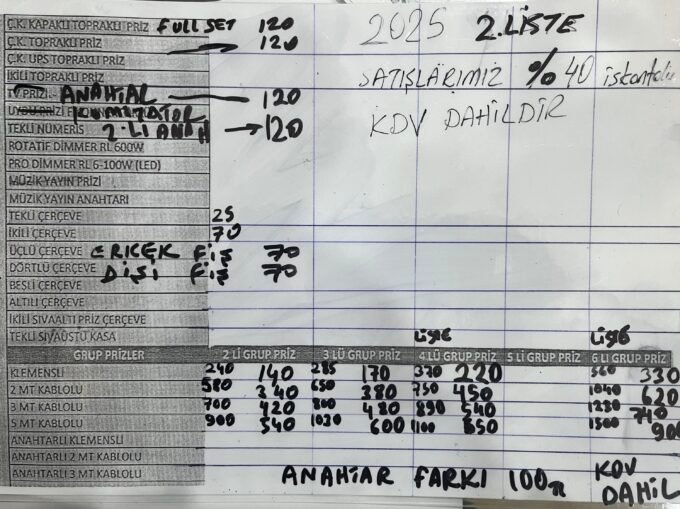 Ç.K. KAPAKLI TOPRAKLI PRİZ FULL SET 120 2025 2.LİSTE
Ç.K. TOPRAKLI PRİZ 120
Ç.K. UPS TOPRAKLI PRİZ
İKİLİ TOPRAKLI PRİZ SATIŞLARIMIZ %40 iskontolu
TV PRİZİ ANAHTAR 120
UYDU PRİZİ KOMİTATÖR KDV DAHİLDİR
TEKLİ NÜMERİS 2-Lİ ANAH 120
ROTATİF DİMMER RL 600W
PRO DİMMER RL 6-100W (LED)
MÜZİK YAYIN PRİZİ
MÜZİK YAYIN ANAHTARI
TEKLİ ÇERÇEVE 25
İKİLİ ÇERÇEVE 70
ÜÇLÜ ÇERÇEVE ERKEK FİŞ 70
DÖRTLÜ ÇERÇEVE DİŞİ FİŞ 70
BEŞLİ ÇERÇEVE
ALTILI ÇERÇEVE
İKİLİ SIVAALTI PRİZ ÇERÇEVE
TEKLİ SIVAÜSTÜ KASA
GRUP PRİZLER 2 Lİ GRUP PRİZ 3 LÜ GRUP PRİZ 4 LÜ GRUP PRİZ 5 Lİ GRUP PRİZ 6 LI GRUP PRİZ
KLEMENSLİ 240 140 285 170 370 220 560 330
2 MT KABLOLU 580 340 650 380 750 450 1040 620
3 MT KABLOLU 700 420 800 480 890 540 1230 740
5 MT KABLOLU 900 540 1030 600 1100 650 1500 900
ANAHTARLI KLEMENSLİ
ANAHTARLI 2 MT KABLOLU
ANAHTARLI 3 MT KABLOLU ANAHTAR FARKI 100 TL KDV DAHİL